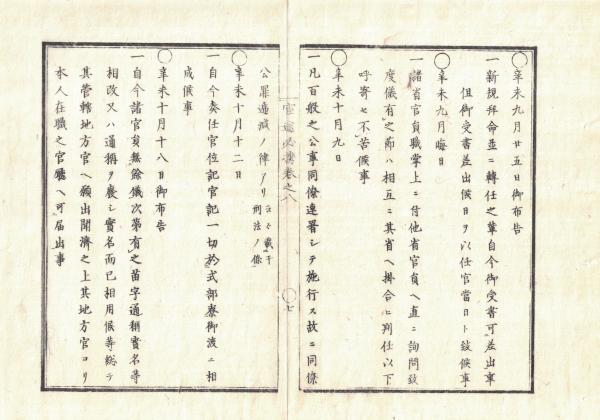 ◯辛未九月廿五日御布告
一新規拜命並ニ轉任之輩自今御受書可差出事
但御受書差出候日ヲ以任官當日ト致候事
◯辛未九月晦日
一諸省官員職掌上ニ付他省官員ヘ直ニ詢問致
度儀有之節ハ相互ニ其省ヘ掛合ニ判任以下
呼寄セ不苦候事
◯辛未十月九日
一凡百般之公事同僚連署シテ施行ス故ニ同僚
官途必携巻之八
◯七
公罪逓減ノ律アリ
載テ刑法ノ條
◯辛未十月十二日
一自今奏任官位記官記一切於式部寮御渡ニ相
成候事
◯辛未十月十八日御布告
一自今諸官員無餘儀次第有之苗字通稱實名等
相改又ハ通稱ヲ廢シ實名而已相用候等総テ
其管轄地方官ヘ願出聞濟之上其地方官ヨリ
本人在職之官廳ヘ可届出事